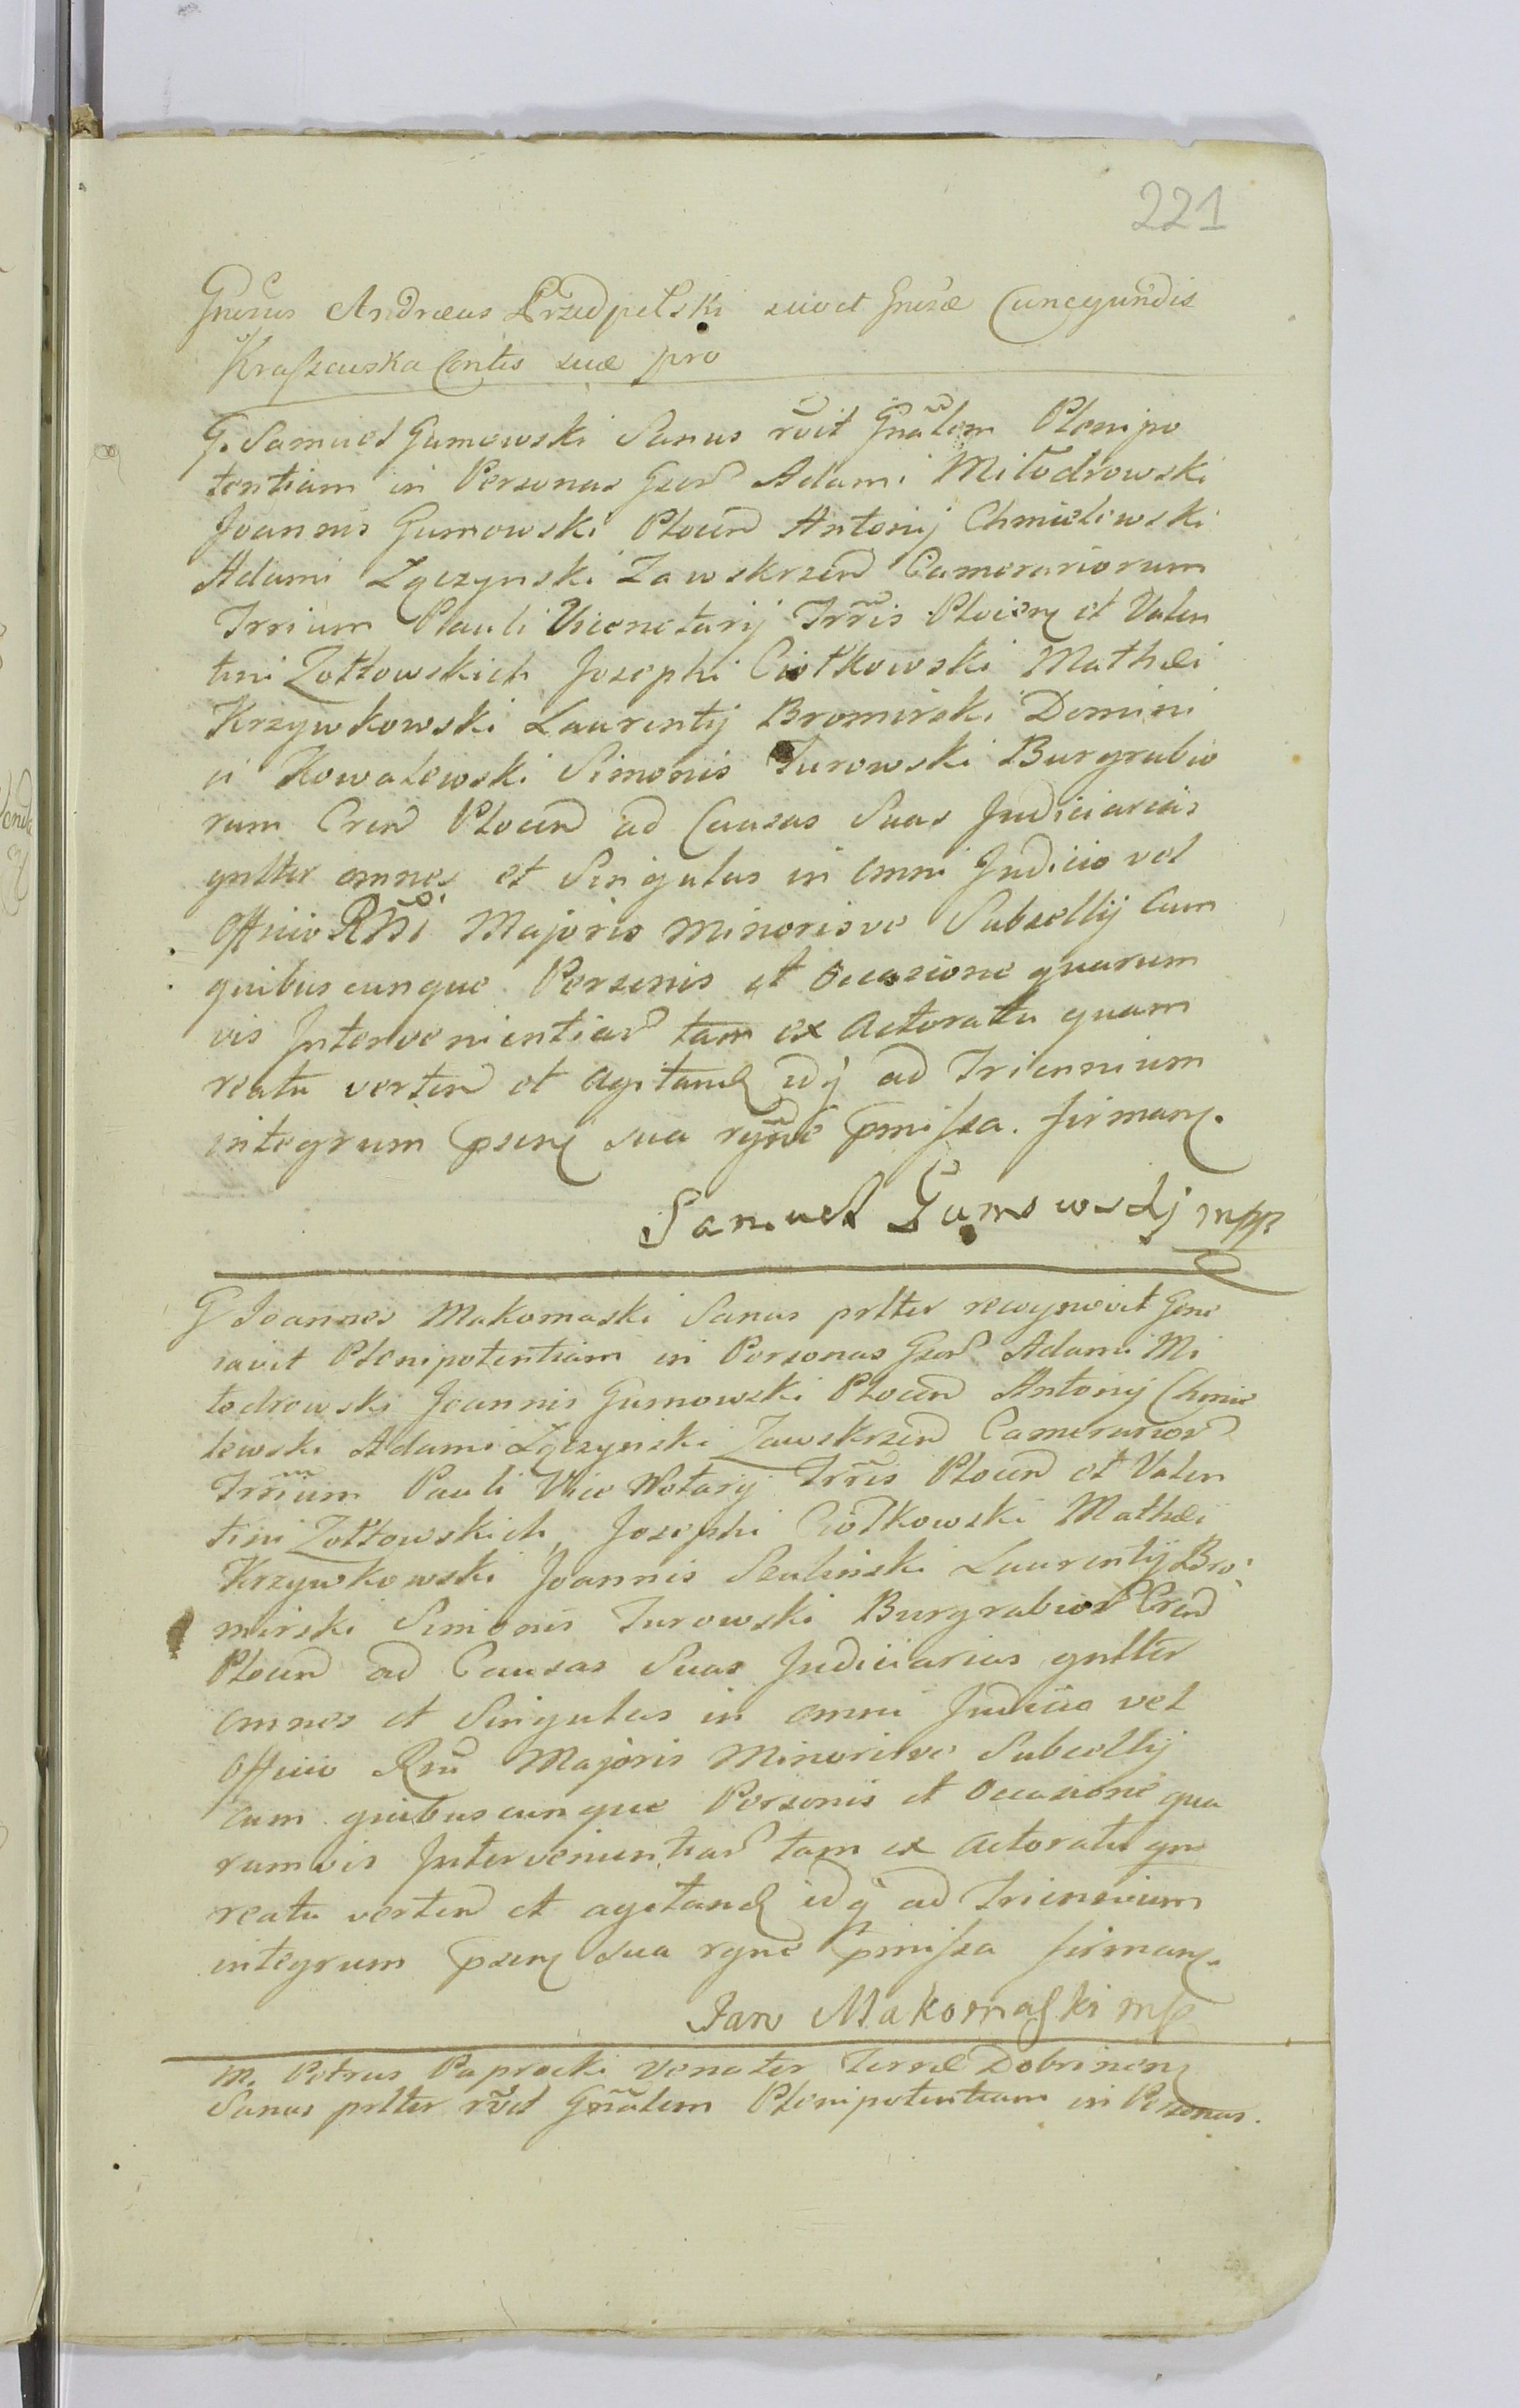 221
Gnrsus Andreas Przedpelski suo et Gnrsæ Cunegundis
Kraszewska Contis suæ pro
G. Samuel Gumowski Sanus rõit Gnãlem Plenipo
tentiam in Personas Gser Adami Miłodrowski
Joannis Gumowski Plocen Antonij Chmielewski
Adami Łączynski Zawskrzen Camerariorum
Trrium Pauli Vicenotarij Trr̃is Plocien et Valen
tini Zołtowskich Josephi Ciołkowski Mathæi
Krzywkowski Laurentij Bromirski Domini
ci Kowalewski Simonis Turowski Burgrabio
rum Cren Plocen ad Causas Suas Judiciarias
gnltter omnes et Singulas in omni Judicio vel
Officio Rñi Majoris Minorisve Subsellij cum
quibuscunque Personis et Occasione quarum
vis Intervenientiar tam ex Actoratu quam
reatu verten et agitand idq ad Triennium
integrum psen sua rgñe pmissa firman.
Samuel Gumowskj mpp
G Joannes Makomaski Sanus prltter recognovit Gene
ravit Plenipotentiam in Personas Gser Adami Mi
łodrowski Joannis Gumowski Plocen Antonij Chmie
lewski Adami Łączynski Zawskrzen Camerarior
Trr̃ium Pauli Vice Notarij Trr̃is Plocen et Valen
tini Zołtowskich Josephi Ciołkowski Mathæi
Krzywkowski Joannis Laurentij Bro:
mirski Simonis Turowski Burgrabior Cren
Plocen ad Causas Suas Judiciarias gnltter
omnes et Singulas in omni Judicio vel
Officio Rñi Majoris Minorisve Subsellij
cum quibuscunque Personis et Occasione qua
rumvis Intervenientiar tam ex Actoratu qm
reatu verten et agitand idq ad Triennium
integrum psen sua rgne pmissa firman.
Jan Makomaski mp
M. Petrus Paprocki Venator Terræ Dobrinen
Sanus prltter rõvit Gnãlem Plenipotentiam in Personas.